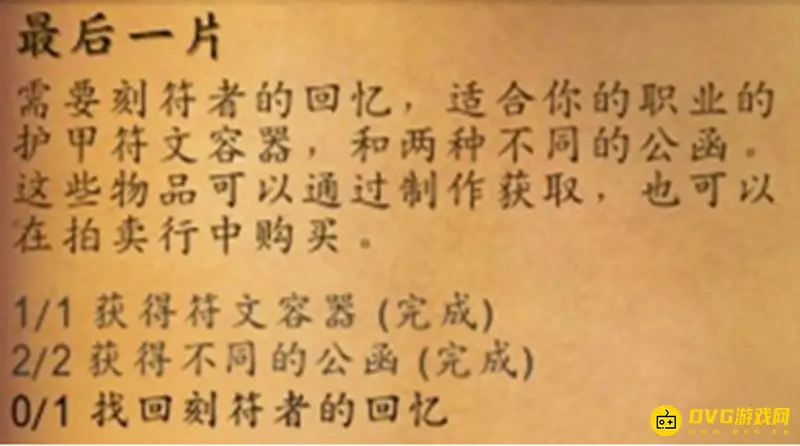 最后一片
需要刻符者的回忆，适合你的职业的
护甲符文容器，和两种不同的公函。
这些物品可以通过制作获取，也可以
在拍卖行中购买。
1/1 获得符文容器 (完成)
2/2 获得不同的公函 (完成)
0/1 找回刻符者的回忆
DVG游戏网
WWW.DVG.CN